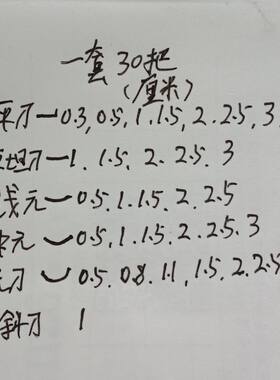 一套30把
(厘米)
平刀—0.3,0.5,1.1.5,2.2.5,3
坦刀—1.1.5.2.2.5.3
浅元—0.5.1.1.5.2.2.5
中元—0.5,1.1.5.2.2.5.3
元刀—0.5.0.8.1.1,1.5.2.2.5
斜刀 1